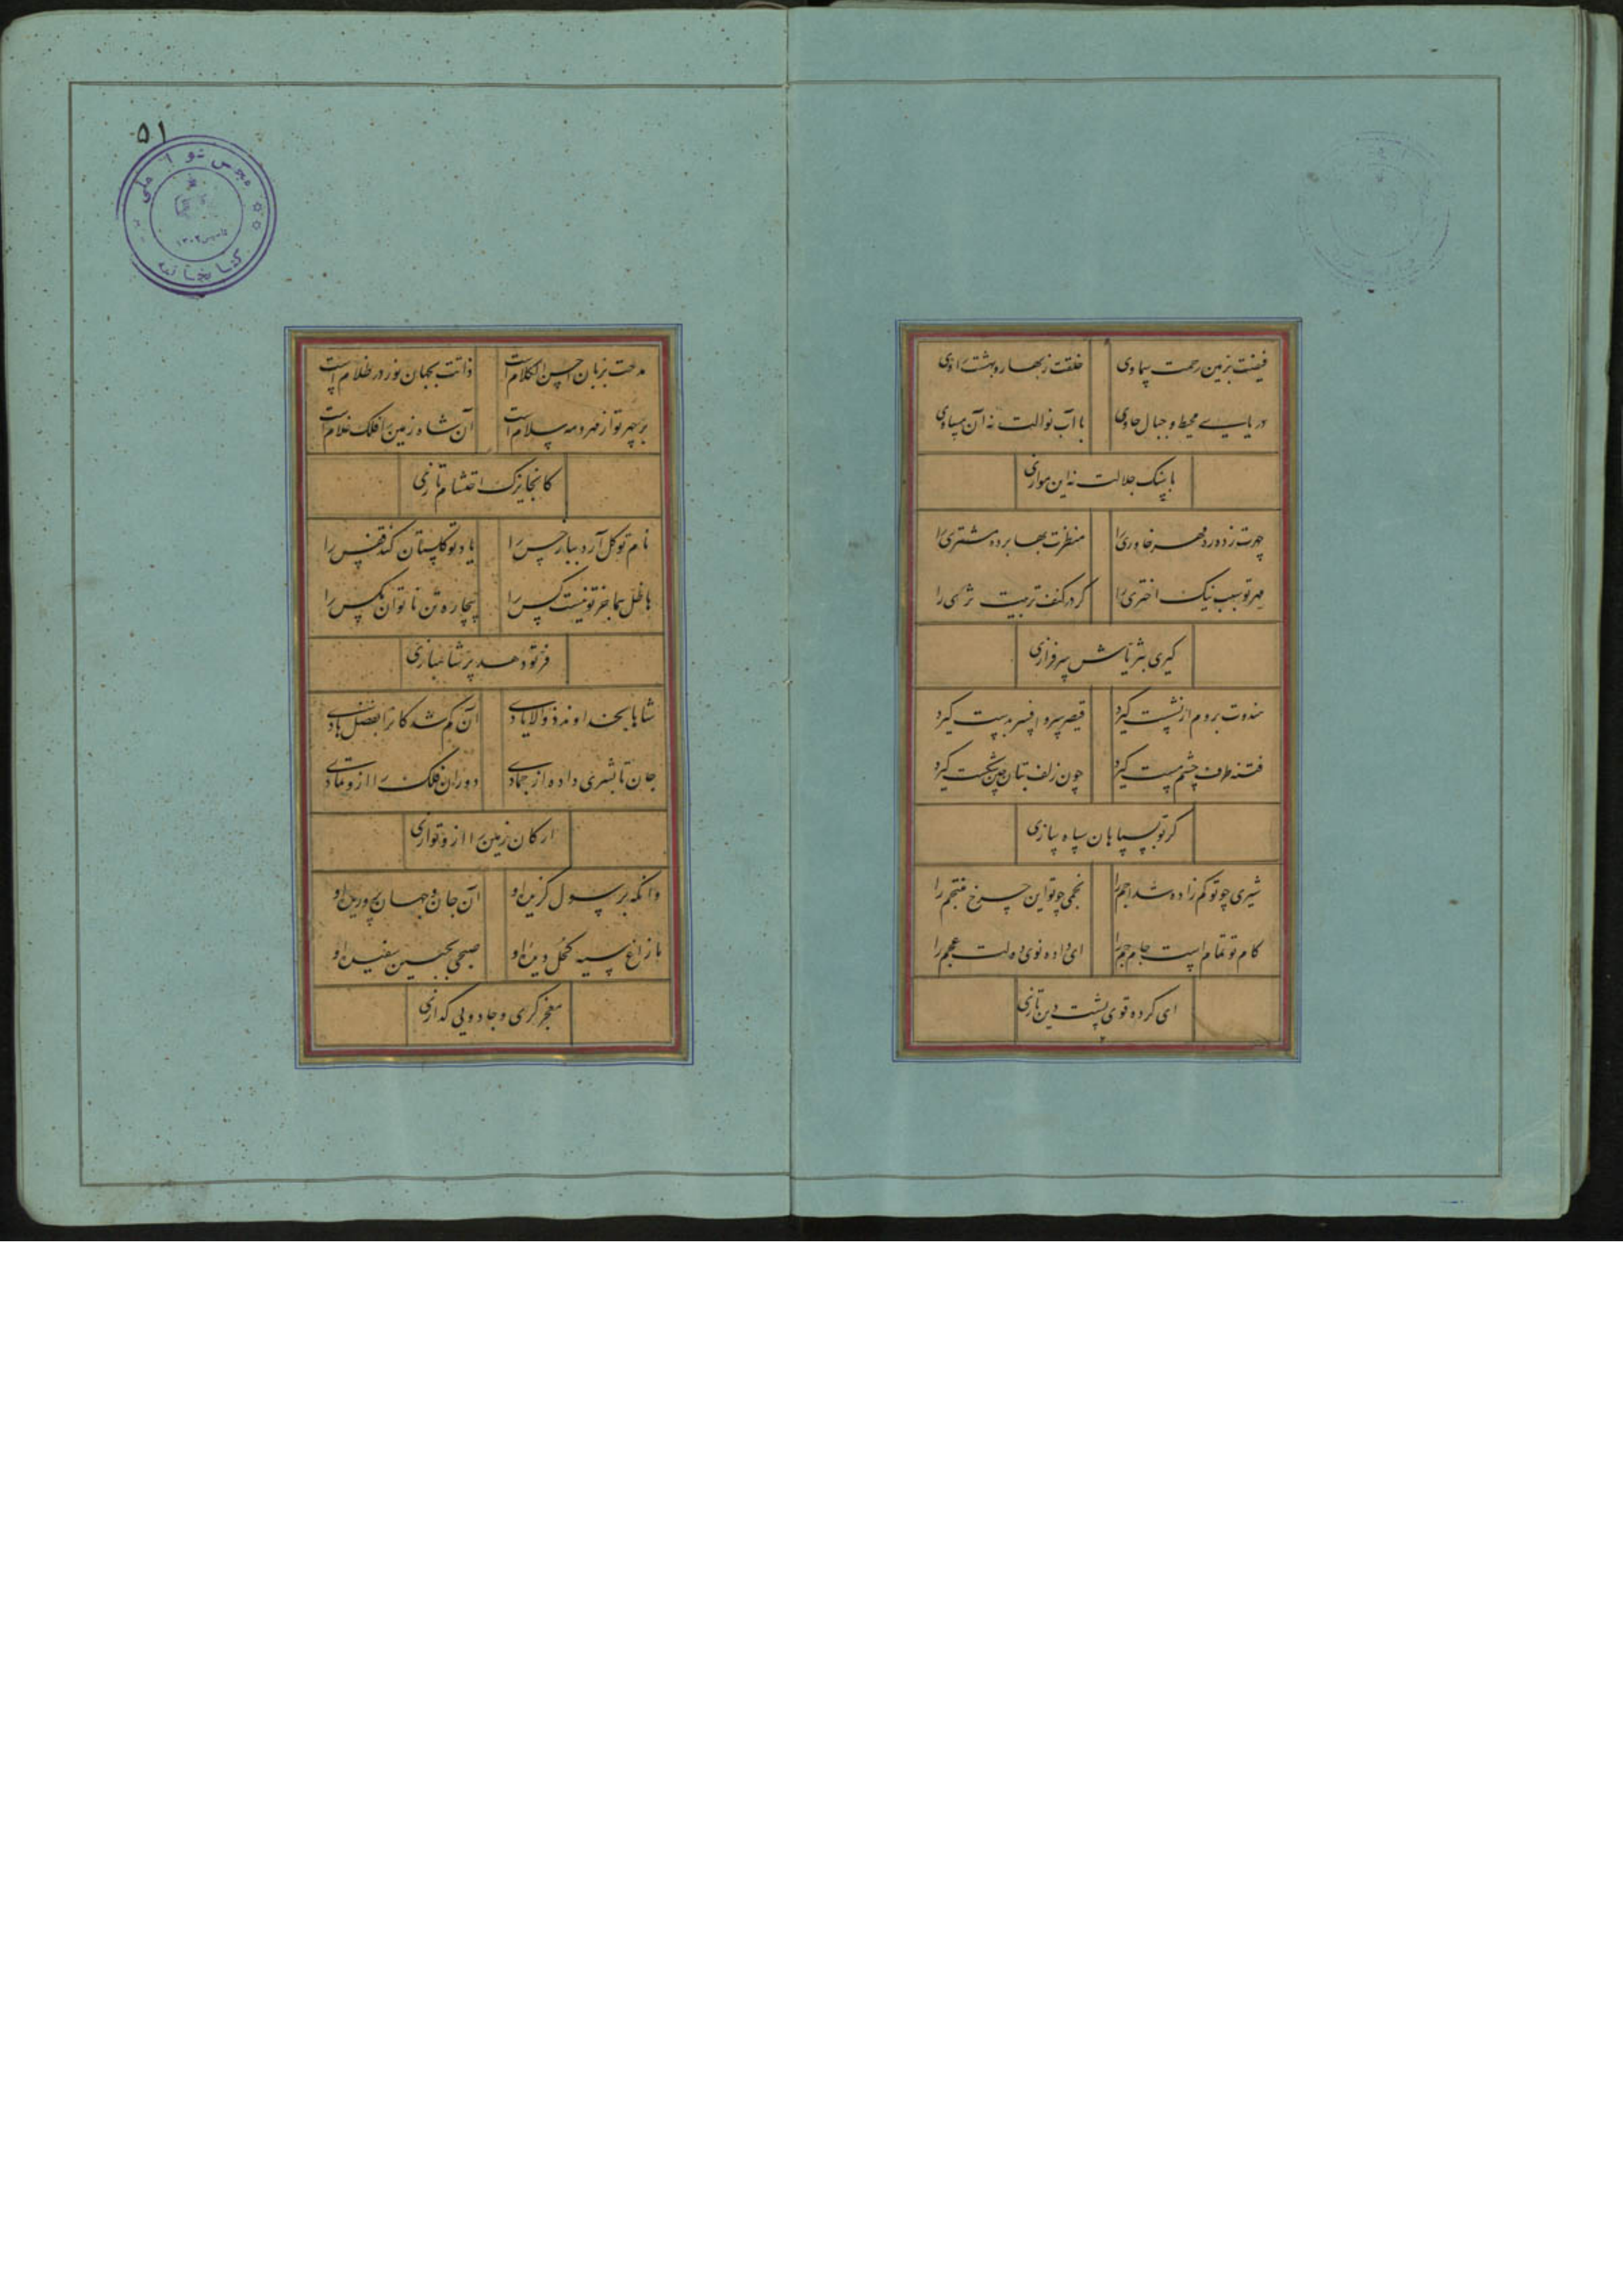 فیضت بزمین رحمت سماوی
خلقت ز بهار و بهشت راوی
دریای محیط و جبال حاوی
با آب نوالت نه آن مساوی
با سنگ جلالت نه این موازی
چهرت زده ره مهر خاوری را
منظرت بها برده مشتری را
مهر تو سبب نیک اختری را
گر در کنف تربیت ثری را
گیری به ثریاش سرفرازی
هندوت بروم ار نشست گیرد
قیصر سر و افسر بدست گیرد
فتنه طرف چشم مست گیرد
چون زلف بتان چین شکست گیرد
گر تو بسپاهان سپاه سازی
شیری چو تو کم زاده شد اجم را
نجمی چو تو این چرخ منتجم را
کام تو تمام است جام جم را
ای داده نوی دولت عجم را
ای کرده قوی پشت دین تازی
۵۱
کتابخانه
مدحت بزبان احسن الکلام است
ذاتت بجهان نور در ظلام است
بر سپهر تو از مهر و مه سلام است
آن شاه زمین را فلک غلام است
کانجا بزک احتشام تازی
نام تو گل آرد ببار خس را
یاد تو گلستان کند قفس را
با ظل هما جز تو نیست کس را
بیچاره تن ناتوان مگس را
فر تو دهد پر شاهبازی
شاها بخداوند ذو الایادی
آن گمشدگان را بفضل هادی
جان تا بشری داده از جمادی
دوران فلک را ازو تمادی
ارکان زمین را ازو تواری
وانگه برسول گزین او
آن جان و جهان پرورین او
ما زاغ سیه کحل دین او
صبحی بجبین سفید او
معجز گری و جادویی گدازی